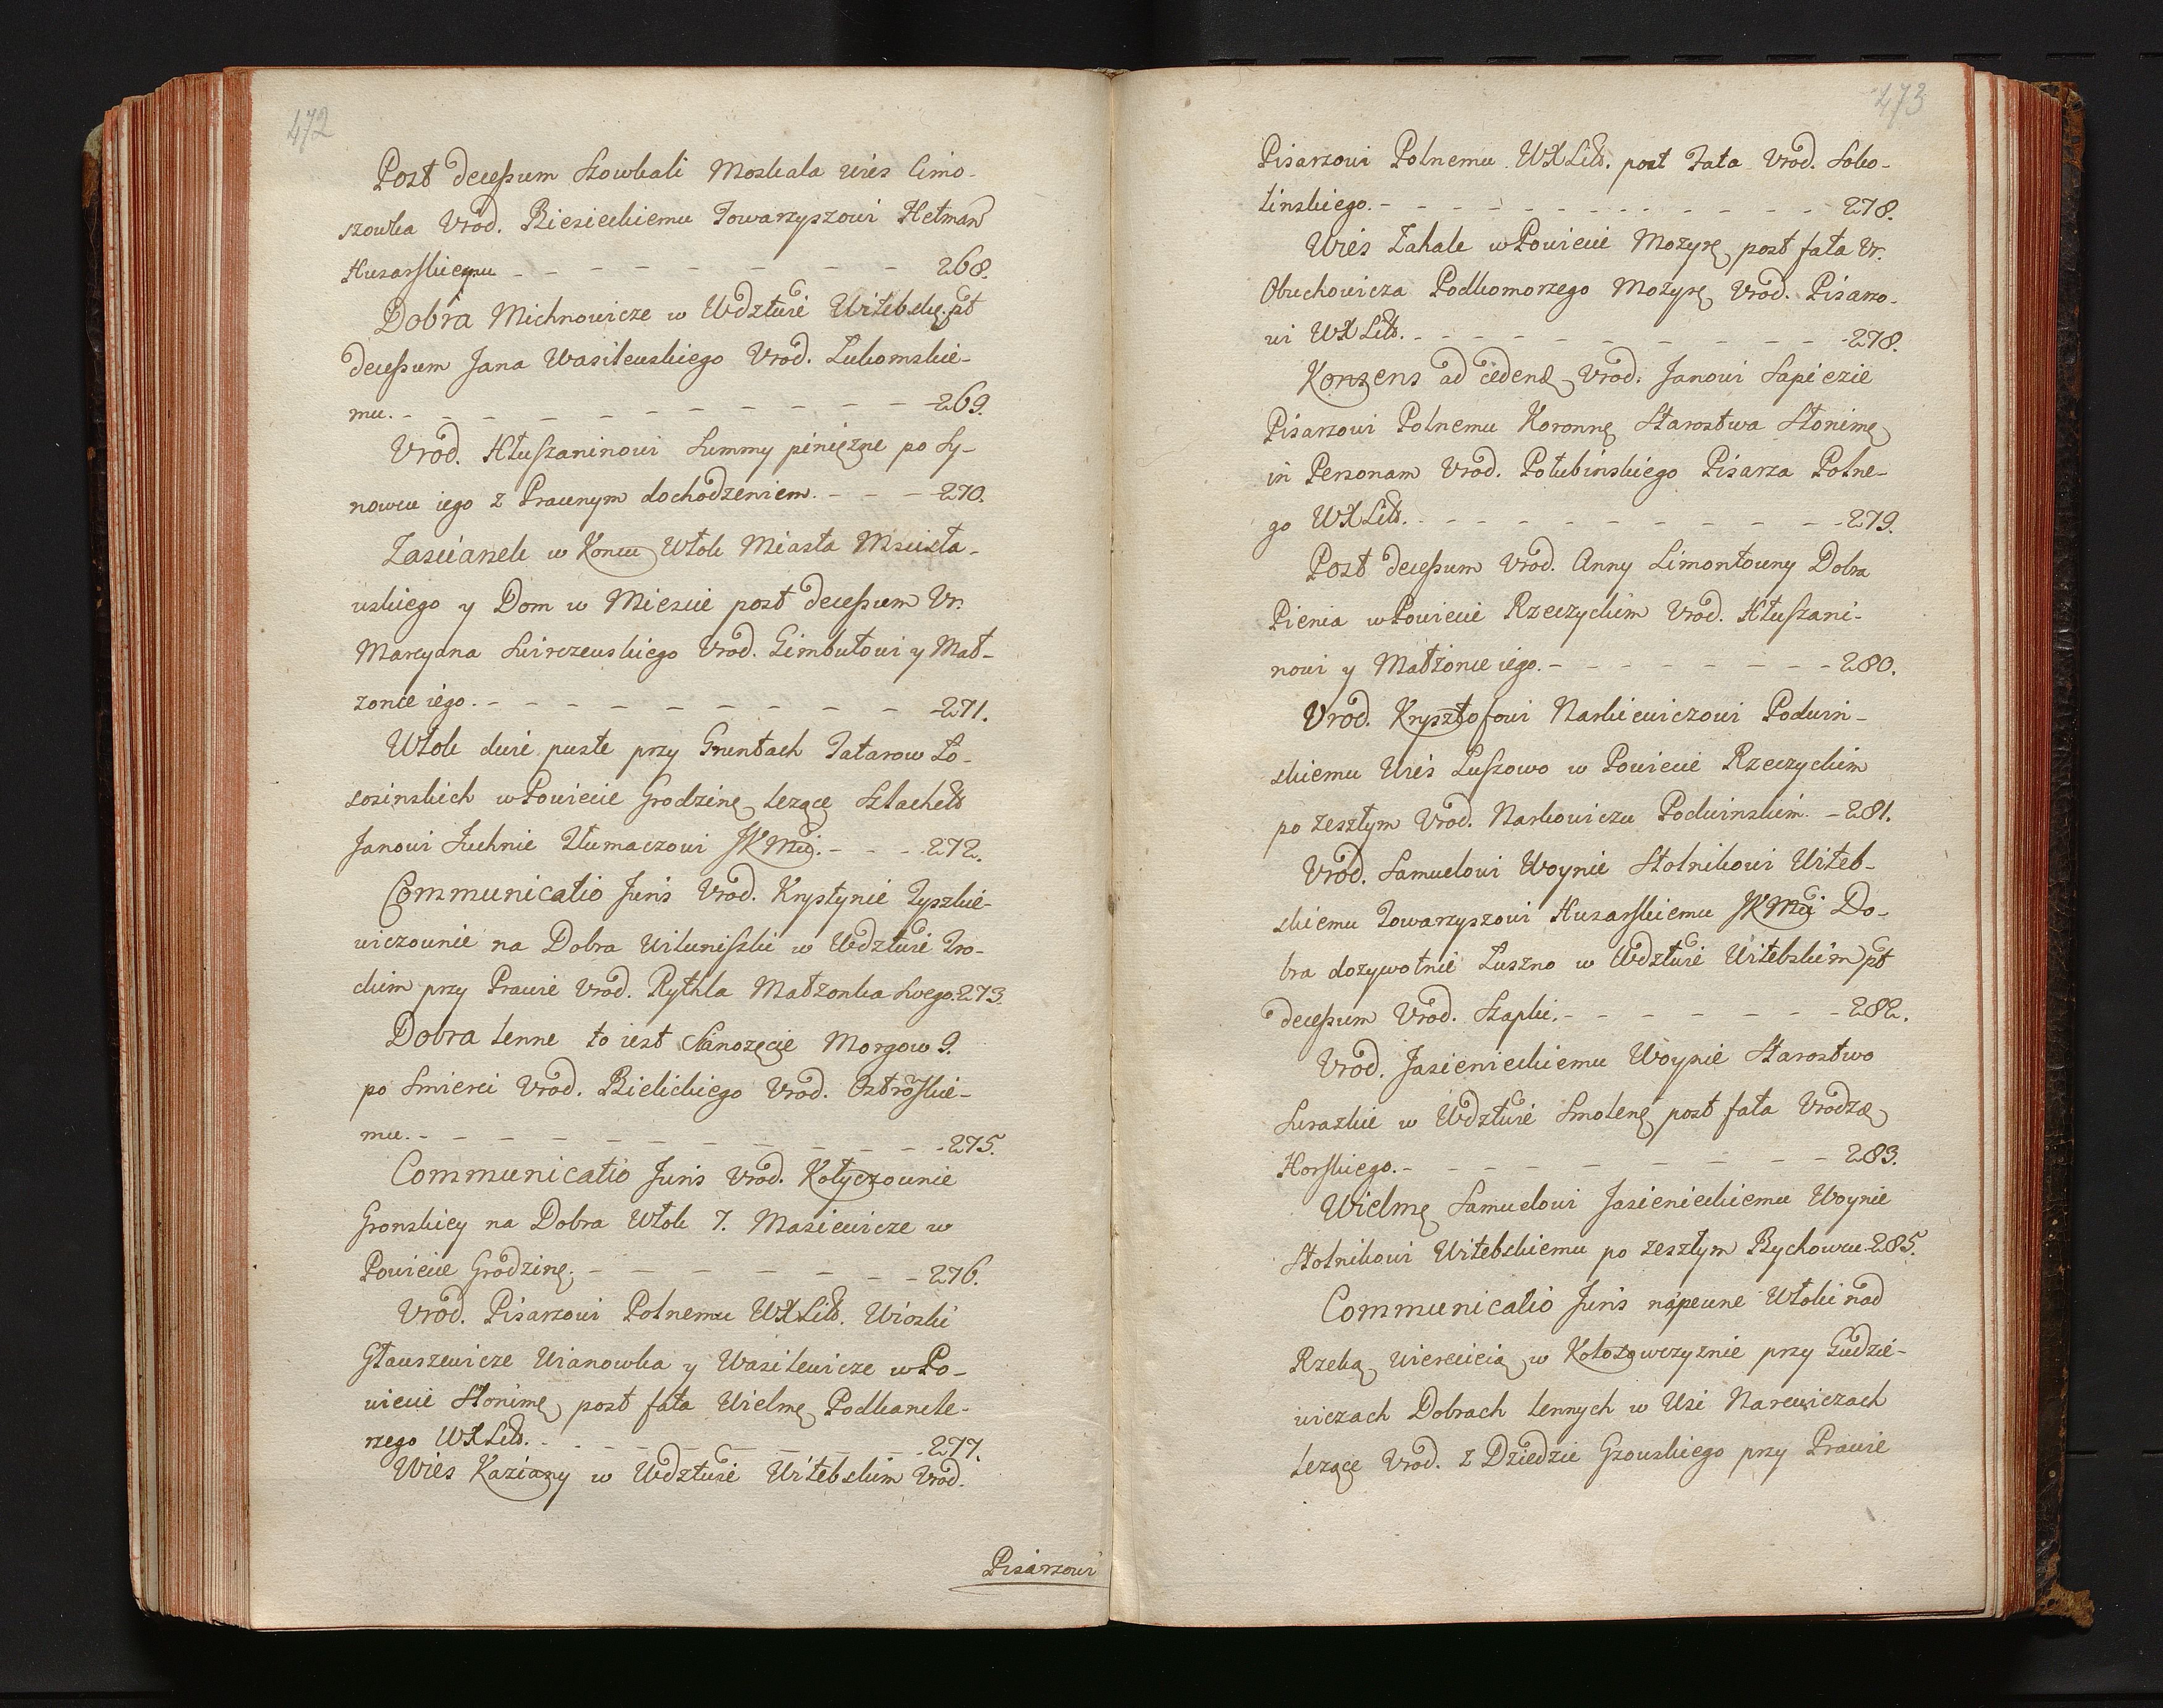 472
Post decessum Stowkali Moskala wies Cimo-
szowka Vrod. Biesieckiemu Towarzyszowi Hetmań
Husarskiemu - - - - - - - - 268.
Dobra Michnowicze w Wdztwie Witebskię. pt
decessum Jana Wasilewskiego Vrod. Lukomskie-
mu. - - - - - - - - - - 269.
Vrod. Hłuszaninowi Summy pinięzne po Sy-
nowcu iego z Prawnym dochodzeniem. - - - 270.
Zascianek w Koncu Włok Miasta Mscisła-
wskiego y Dom w Miescie post decessum Vr.
Marcyana Swirczewskiego Vrod. Gimbutowi y Mał-
zonce iego. - - - - - - - - - 271.
Włok dwie puste przy Gruntach Tatarow Ło-
sosinskich w Powiecie Grodzinę lezące Szlachetō
Janowi Juchnie Tłumaczowi JKMci. - - - 272.
Communicatio Juris Vrod. Krystynie Tyszkie-
wiczownie na Dobra Wiluniszki w Wdztwie Tro-
ckim przy Prawie Vrod. Rythla Małzonka Swego. 273.
Dobra lenne to iest Sianozęcie Morgow 9.
po Smierci Vrod. Bielickiego Vrod. Ostroskie-
mu. - - - - - - - - - - 275.
Communicatio Juris Vrod. Kołyczownie
Gronskiey na Dobra Włok 7. Masiewicze w
Powiecie Grodzinę. - - - - - - - 276.
Vrod. Pisarzowi Polnemu WXLitō. Wioski
Głauszewicze Uianowka y Wasilewicze w Po-
wiecie Słonimę post fata Wielmę Podkancle-
rzego WXLitō. - - - - - - - - 277.
Wies Kaziany w Wdztwie Witebskim Vrod.
Pisarzowi
473
Pisarzowi Polnemu WXLitō. post Fata Vrod. Soko-
linskiego. - - - - - - - - - - 278.
Wies Zahale w Powiecie Mozyrę post fata Vr.
Obuchowicza Podkomorzego Mozyrę Vrod. Pisarzo-
wi WXLitō. - - - - - - - - - - 278.
Konsens ad cedendę Vrod. Janowi Sapiezie
Pisarzowi Polnemu Koronnę Starostwa Słonimę
in Personam Vrod. Połubinskiego Pisarza Polne-
go WXLitō. - - - - - - - - - - 279.
Post decessum Vrod. Anny Limontowny Dobra
Pienia w Powiecie Rzeczyckim Vrod. Hłuszani-
nowi y Małżonce iego. - - - - - - - 280.
Vrod. Krysztofowi Narkiewiczowi Podwin-
skiemu Wies Luszowo w Powiecie Rzeczyckim
po zeszłym Vrod. Narkowiczu Podwinskim. - 281.
Vrod. Samuelowi Woynie Stolnikowi Witeb-
skiemu Towarzyszowi Husarskiemu JKMci Do-
bra dozywotnie Luszno w Wdztwie Witebskim pt
decessum Vrod. Szapki. - - - - - - - 282.
Vrod. Jasienieckiemu Woynie Starostwo
Surazkie w Wdztwie Smolenę post fata Vrodzę
Horskiego. - - - - - - - - - 283.
Wielmę Samuelowi Jasienieckiemu Woynie
Stolnikowi Witebskiemu po zeszłym Bychowcu. 285.
Communicatio Juris na pewne Włoki nad
Rzeką Wiercicią w Kołotowczyznie przy Gudzie-
wiczach Dobrach lennych w Wsi Narewiczach
lezące Vrod. z Dziedzic Gzowskiego przy Prawie